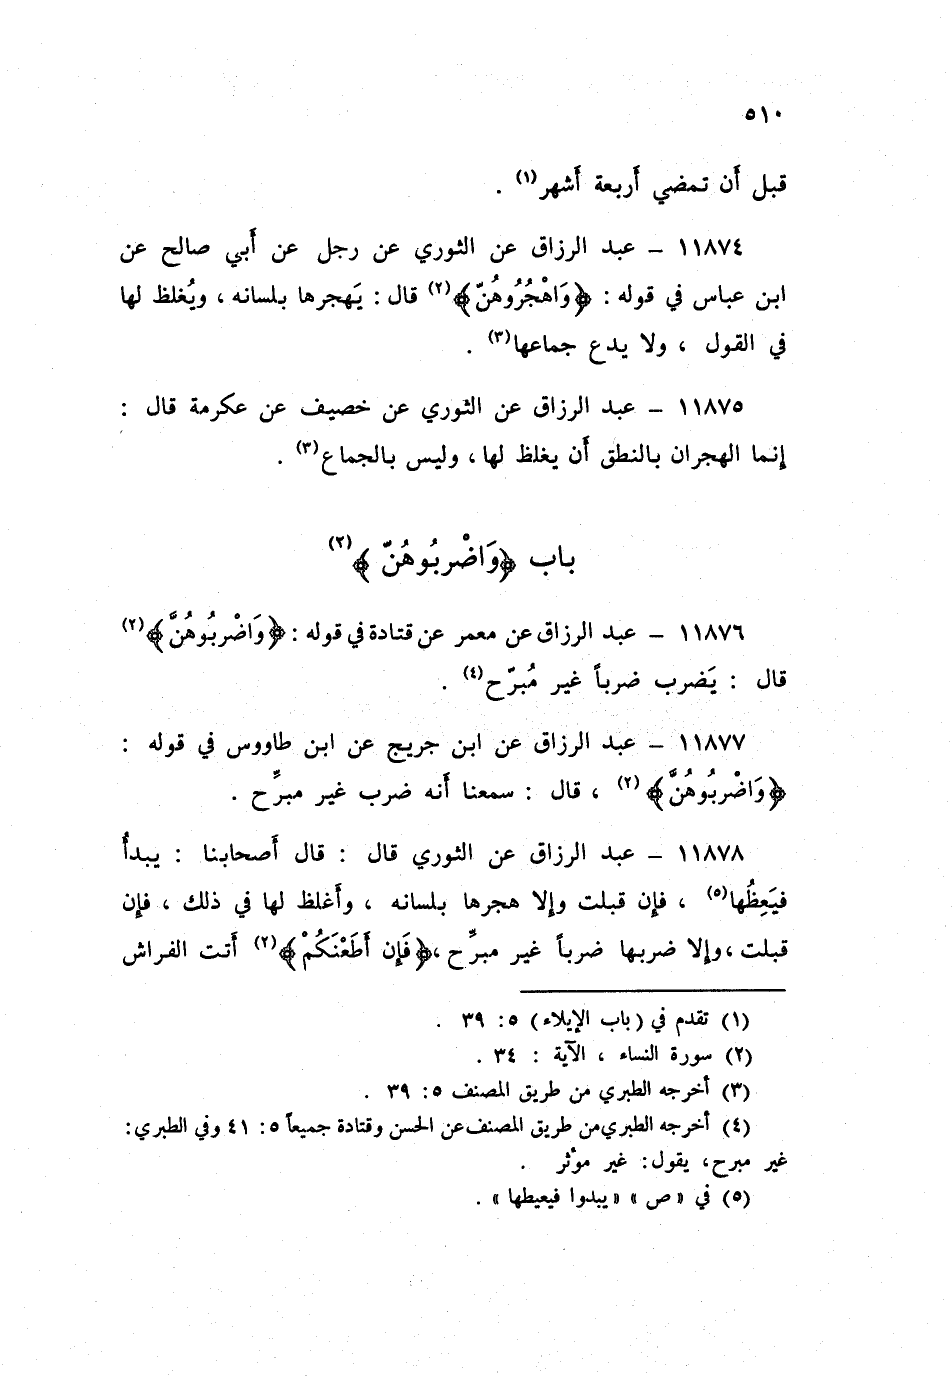 ٥١٠
قبل أَن تمضي أَربعة أَشهر(١) .
١١٨٧٤ – عبد الرزاق عن الثوري عن رجل عن أَبي صالح عن
ابن عباس في قوله : ﴿وَاهْجُرُوهُنّ﴾(٢) قال : يَهجرها بلسانه ، ويُغلظ لها
في القول ، ولا يدع جماعها(٣) .
١١٨٧٥ – عبد الرزاق عن الثوري عن خصيف عن عكرمة قال :
إنما الهجران بالنطق أَن يغلظ لها ، وليس بالجماع(٣) .
باب ﴿وَاضْربُوهُنّ ﴾(٢)
١١٨٧٦ – عبد الرزاق عن معمر عن قتادة في قوله : ﴿وَاضْربُوهُنَّ﴾(٢)
قال : يَضرب ضرباً غير مُبرّح(٤) .
١١٨٧٧ – عبد الرزاق عن ابن جريج عن ابن طاووس في قوله :
﴿وَاضْربُوهُنَّ﴾(٢) ، قال : سمعنا أَنه ضرب غير مبرِّح .
١١٨٧٨ – عبد الرزاق عن الثوري قال : قال أَصحابنا : يبدأُ
فيَعِظُها(٥) ، فإن قبلت وإلا هجرها بلسانه ، وأَغلظ لها في ذلك ، فإن
قبلت ، وإلا ضربها ضرباً غير مبرِّح ، ﴿فَإِن أَطَعْنَكُمْ﴾(٢) أَتت الفراش
(١) تقدم في (باب الإيلاء) ٥: ٣٩ .
(٢) سورة النساء ، الآية : ٣٤ .
(٣) أخرجه الطبري من طريق المصنف ٥: ٣٩ .
(٤) أخرجه الطبري من طريق المصنف عن الحسن وقتادة جميعاً ٥: ٤١ وفي الطبري :
غير مبرح ، يقول : غير مؤثر .
(٥) في « ص » « يبدوا فيعيطها » .